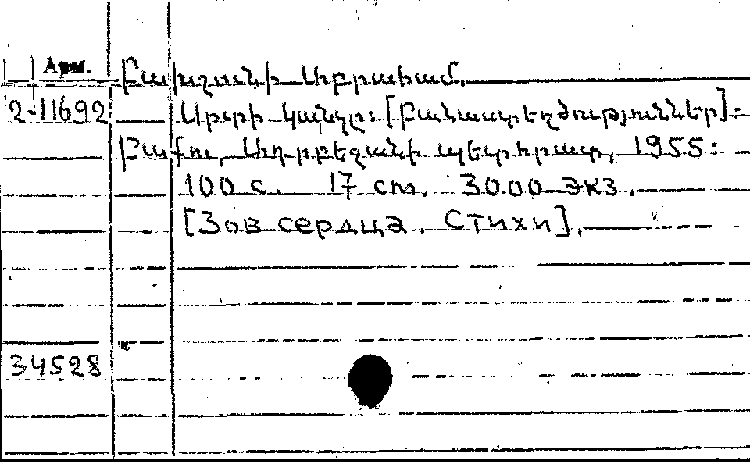 Арм.
Բախշունի Աբրահամ.
2-11692 Սրտի կանչը: [Բանաստեղծություններ]:
Բաքու, Ադրբեջանի պետհրատ, 1955:
100 с. 17 см. 3000 экз.
[Зов сердца. Стихи].
34528